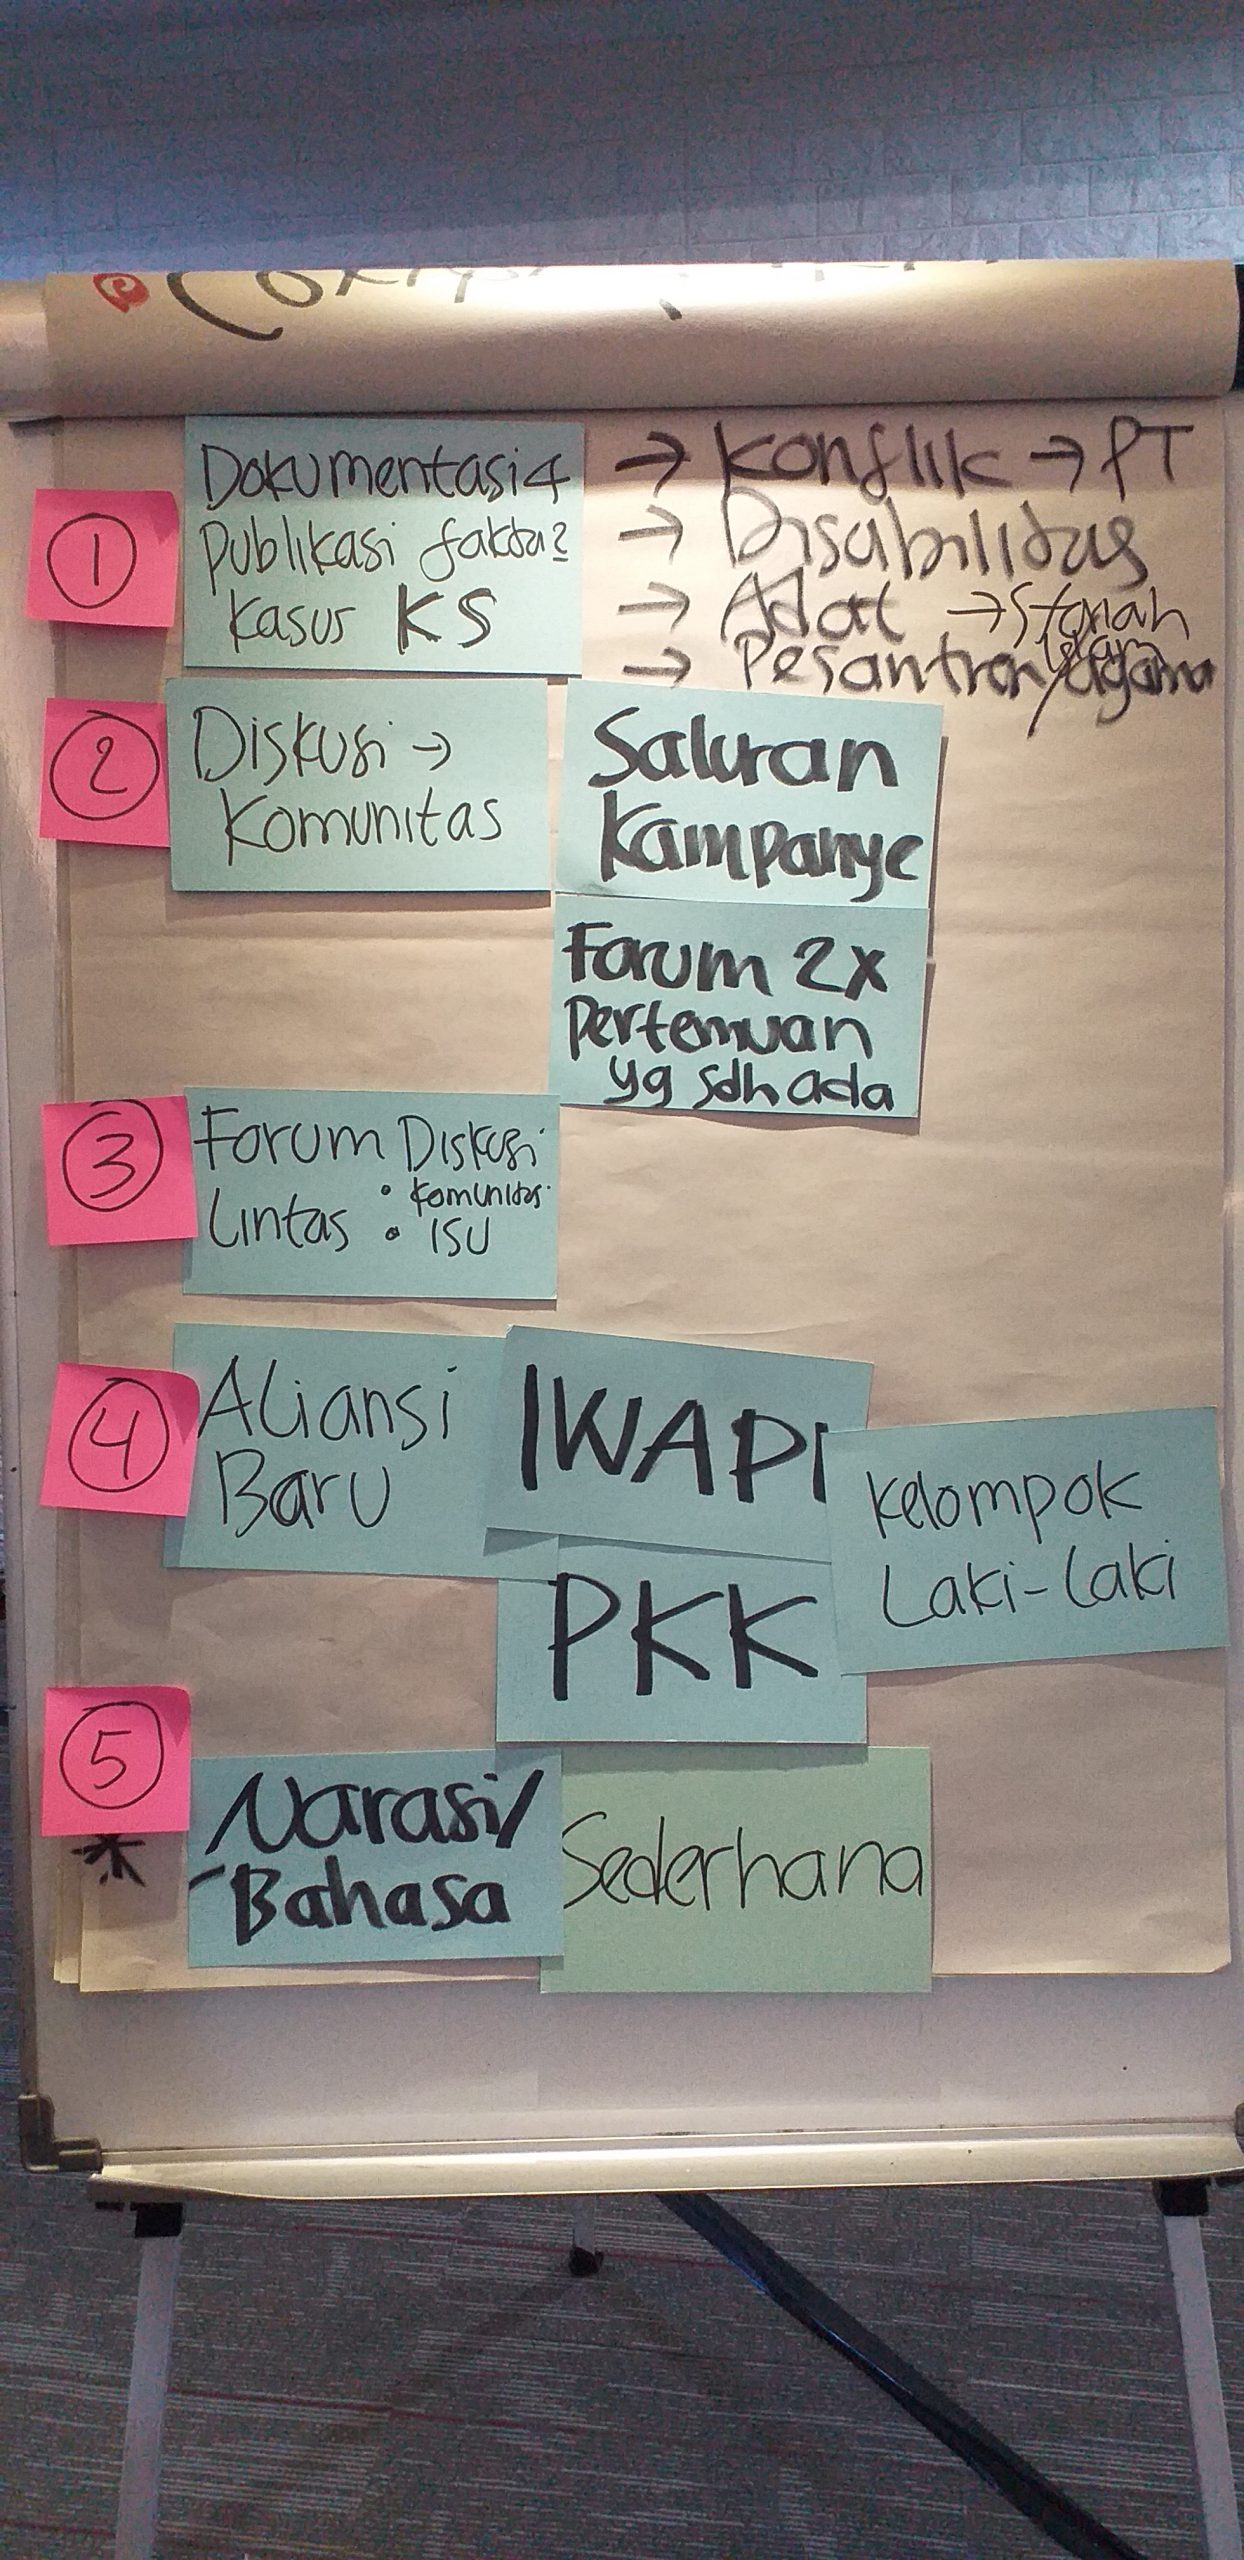 1
Dokumentasi &
Publikasi fakta2
Kasus KS
→ Konflik → PT
→ Disabilitas
→ Adat → Syariah
Islam
→ Pesantren/agama
2
Diskusi →
Komunitas
Saluran
Kampanye
Forum 2x
Pertemuan
yg sdh ada
3
Forum Diskusi
Lintas • Komunitas
• ISU
4
Aliansi
Baru
IWAPI
PKK
Kelompok
Laki-Laki
5
*
Narasi/
Bahasa
Sederhana